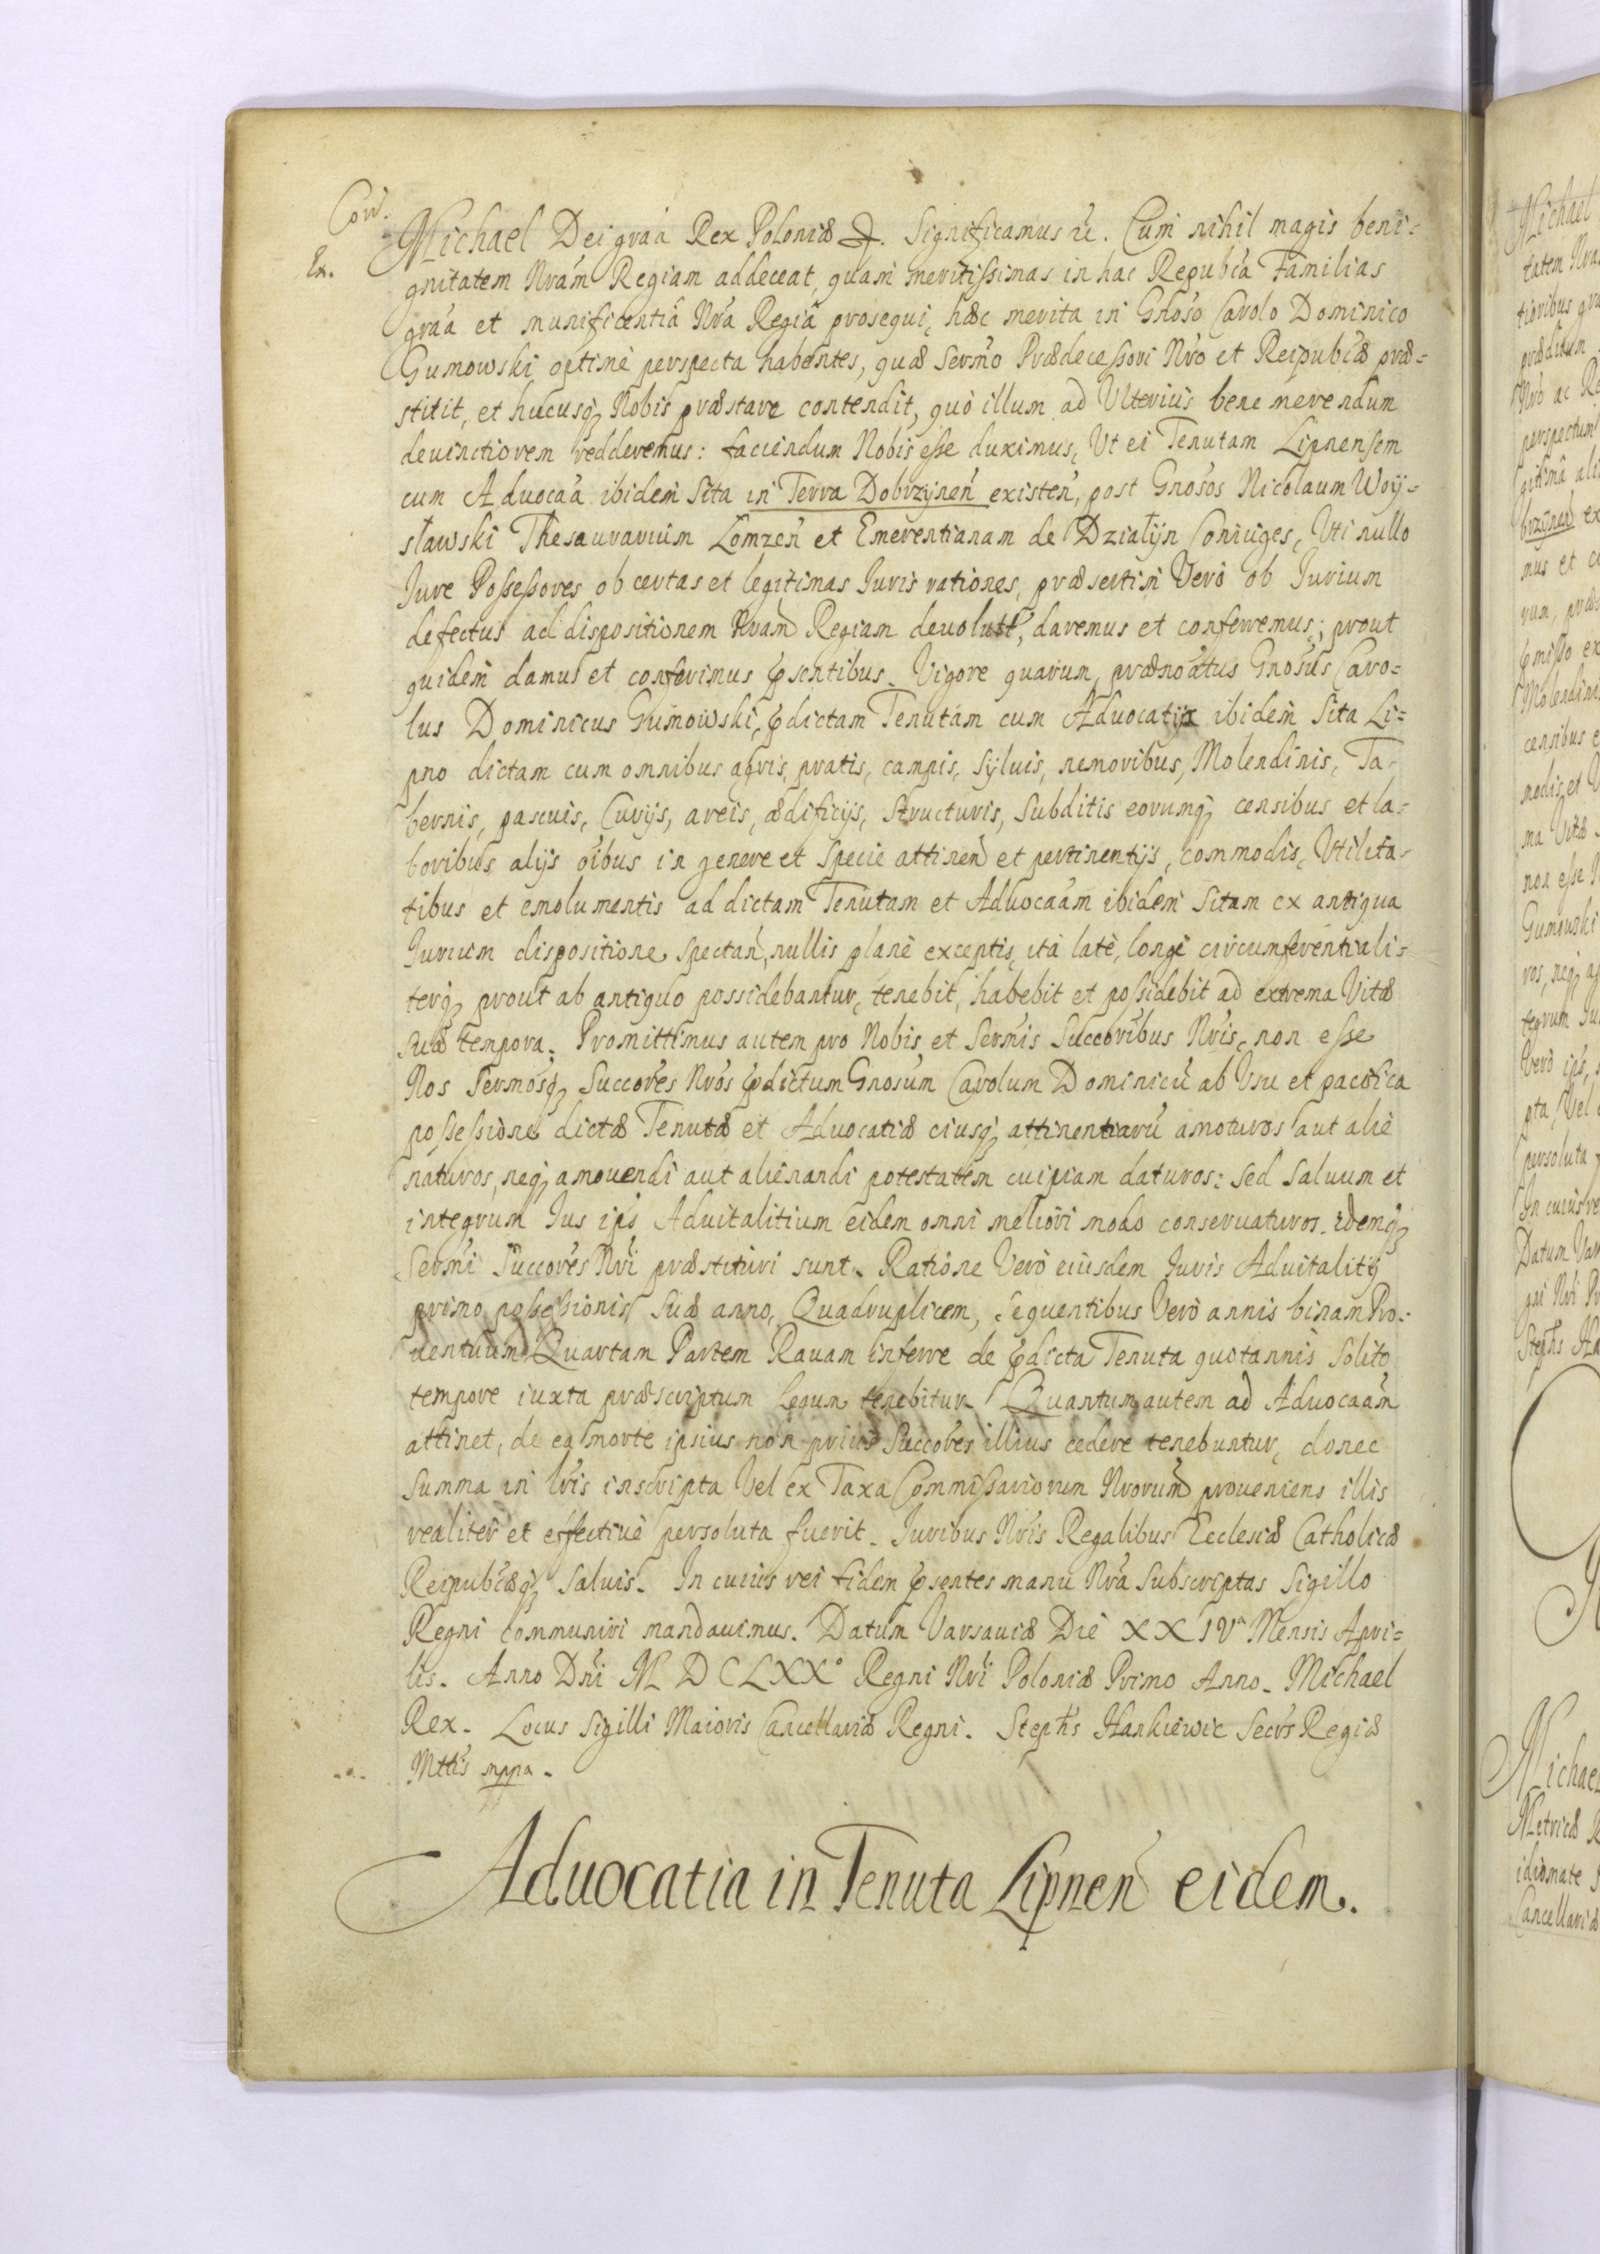 Corr.
Ex.
Michael Dei gráá Rex Poloniæ &. Significamus &. Cum nihil magis beni-
gnitatem Nrám Regiam addeceat, quám meritißimas in hac Repubĺa Familias
gráa et munificentiâ Nrâ Regiâ prosequi, hæc merita in Gnóso Carolo Dominico
Gumowski optimè perspecta habentes, quæ Sermó Prædeceßori Nró et Reipubĺæ præ-
stitit, et hucusq Nobis præstare contendit, quò illum ad Vlterius bene merendum
deuinctiorem redderemus: faciendum Nobis eße duximus, Vt ei Tenutam Lipnensem
cum Aduocaá ibidem Sita in Terra Dobrzynen existen, post Gnósos Nicolaum Woy-
sławski Thesaurarium Łomzen et Emerentianam de Działyn Coniuges, Vti nullo
Iure Poßeßores ob certas et legitimas Iuris rationes, præsertim Verò ob Iurium
defectus ad dispositionem Nram Regiam deuolut, daremus et conferremus; prout
quidem damus et conferimus psentibus. Vigore quarum, prænoatus Gnosus Caro-
lus Dominicus Gumowski, pdictam Tenutam cum Aduocatia ibidem Sita Li-
pno dictam cum omnibus agris, pratis, campis, syluis, nemoribus, Molendinis, Ta-
bernis, pascuis, Curijs, areis, ædificijs, structuris, Subditis eorumq censibus et la-
boribus, alijs oíbus in genere et Specie attinen et pertinentijs, commodis, Vtilita-
tibus et emolumentis ad dictam Tenutam et Aduocaám ibidem Sitam ex antiqua
Iurium dispositione spectan, nullis planè exceptis, ità latè, longè circumferentiali-
terq prout ab antiquo possidebantur, tenebit, habebit et poßidebit ad extrema Vitæ
suæ tempora. Promittimus autem pro Nobis et Sermis Succoribus Nris, non eße
Nos Sermosq Succores Nros pdictum Gnosum Carolum Dominicū ab Vsu et pacifica
poßeßione dictæ Tenutæ et Aduocatiæ eiusq attinentiarū amoturos aut alie
naturos, neq amouendi aut alienandi potestatem cuipiam daturos: sed Saluum et
integrum Ius ipsi Aduitalitium eidem omni meliori modo conseruaturos. idemq
Sermi Succores Nri præstituri sunt. Ratione Verò eiusdem Iuris Aduitalitij
primo poßeßionis Suæ anno, Quadruplicem, Sequentibus Verò annis binam Pro-
uentuum Quartam Partem Rauam inferre de pdicta Tenuta quotannis Solito
tempore iuxta præscriptum Legum tenebitur. Quantum autem ad Aduocaám
attinet, de ea morte ipsius non priùs Succores illius cedere tenebuntur, donec
summa in lris inscripta Vel ex Taxa Commißariorum Nrorum proueniens illis
realiter et effectiuè persoluta fuerit. Iuribus Nris Regalibus Ecclesiæ Catholicæ
Reipubĺæq Saluis. In cuius rei fidem psentes manu Nrâ Subscriptas Sigillo
Regni Communiri mandauimus. Datum Varsauiæ Die XXIVᵃ Mensis Apri-
lis. Anno Dni M DCLXX° Regni Nri Poloniæ Primo Anno. Michael
Rex. Locus Sigilli Maioris Cancellariæ Regni. Stephs Hankiewic Secrs Regiæ
Mttis mppa.
Aduocatia in Tenuta Lipnen eidem.